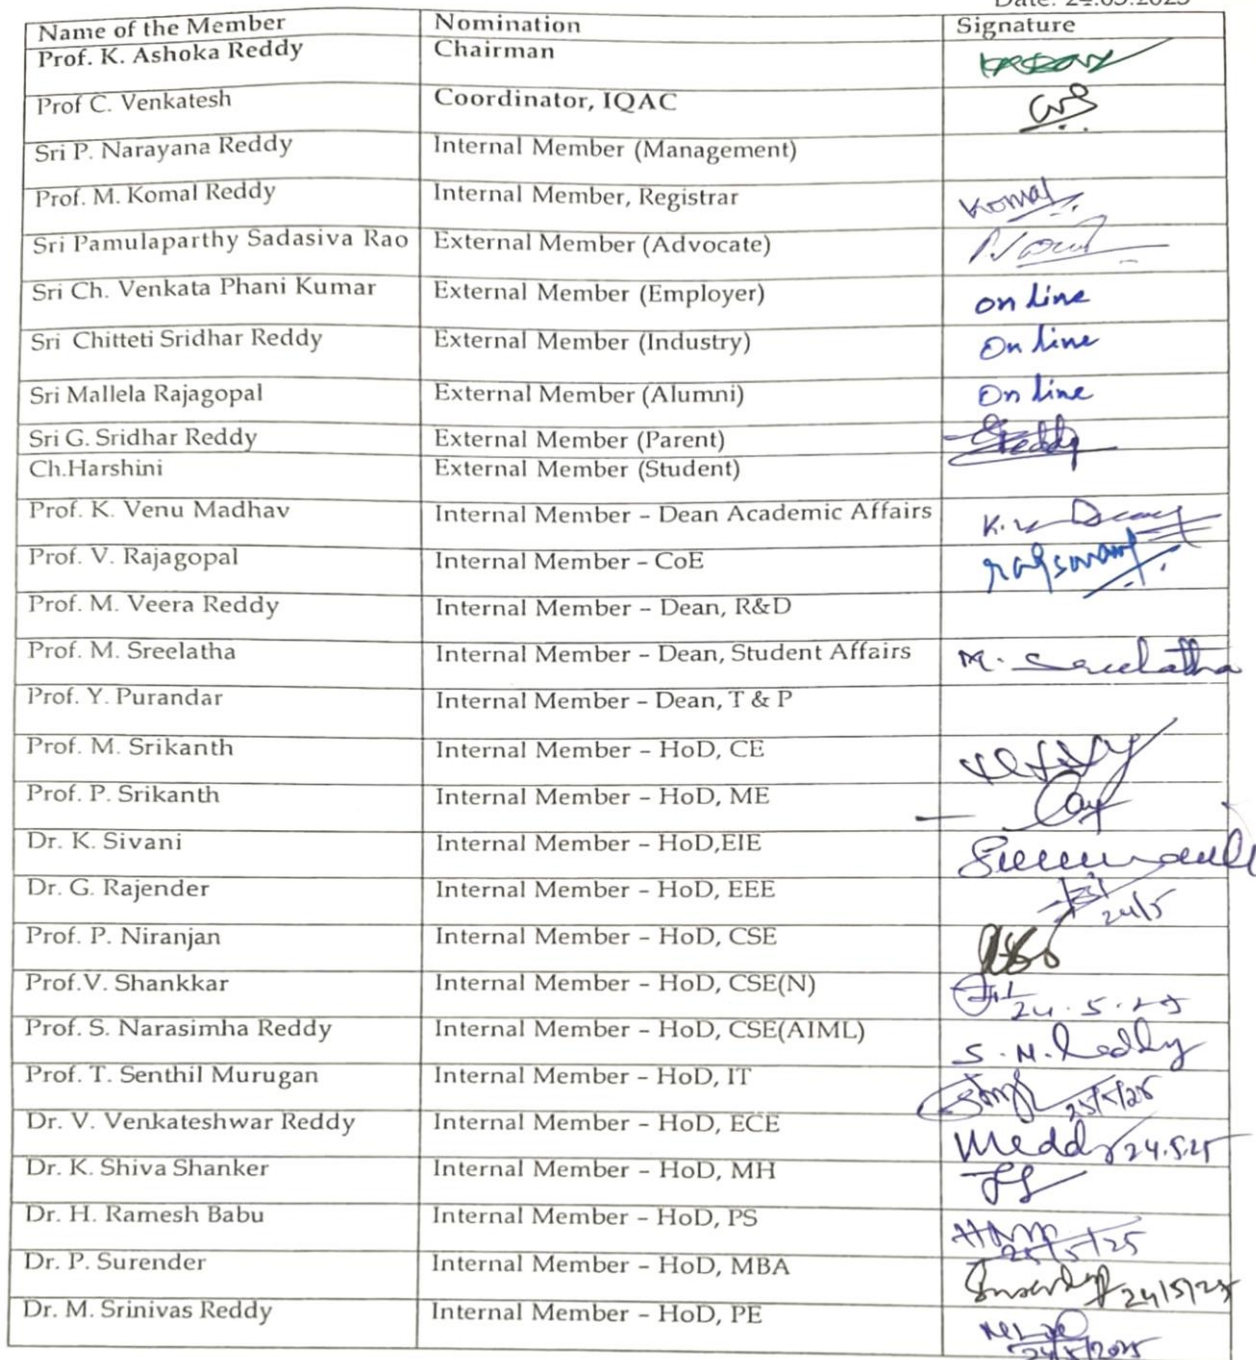 Date: 24.05.2025
Name of the Member Nomination Signature
Prof. K. Ashoka Reddy Chairman
Prof C. Venkatesh Coordinator, IQAC
Sri P. Narayana Reddy Internal Member (Management)
Prof. M. Komal Reddy Internal Member, Registrar Komal
Sri Pamulaparthy Sadasiva Rao External Member (Advocate)
Sri Ch. Venkata Phani Kumar External Member (Employer) on line
Sri Chitteti Sridhar Reddy External Member (Industry) On line
Sri Mallela Rajagopal External Member (Alumni) On line
Sri G. Sridhar Reddy External Member (Parent) Reddy
Ch.Harshini External Member (Student)
Prof. K. Venu Madhav Internal Member – Dean Academic Affairs K.V
Prof. V. Rajagopal Internal Member – CoE
Prof. M. Veera Reddy Internal Member – Dean, R&D
Prof. M. Sreelatha Internal Member – Dean, Student Affairs M. Sreelatha
Prof. Y. Purandar Internal Member – Dean, T & P
Prof. M. Srikanth Internal Member – HoD, CE
Prof. P. Srikanth Internal Member – HoD, ME
Dr. K. Sivani Internal Member – HoD,EIE
Dr. G. Rajender Internal Member – HoD, EEE 24/5
Prof. P. Niranjan Internal Member – HoD, CSE
Prof.V. Shankkar Internal Member – HoD, CSE(N) 24.5.25
Prof. S. Narasimha Reddy Internal Member – HoD, CSE(AIML) S.N.Reddy
Prof. T. Senthil Murugan Internal Member – HoD, IT 25/5/25
Dr. V. Venkateshwar Reddy Internal Member – HoD, ECE 24.5.25
Dr. K. Shiva Shanker Internal Member – HoD, MH
Dr. H. Ramesh Babu Internal Member – HoD, PS
Dr. P. Surender Internal Member – HoD, MBA 24/5/25
Dr. M. Srinivas Reddy Internal Member – HoD, PE 24/5/2025